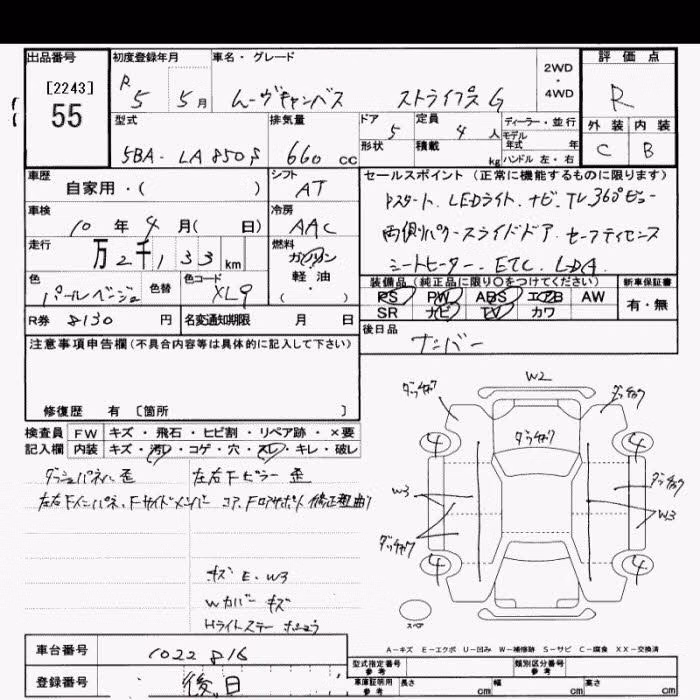 出品番号 初度登録年月 車名・グレード 2WD・4WD 評価点
[2243] 55
R 5 5月 ムーヴキャンバス ストライプスG R
型式 排気量 ドア 定員 ディーラー・並行 外装 内装
5BA- LA850S 660 cc 5 4人 モデル年式 年 C B
形状 積載 kg ハンドル 左・右
車歴 シフト セールスポイント(正常に機能するものに限ります)
自家用・( ) AT
Pスタート、LEDライト、ナビ、TV、360°ビュー
車検 冷房
10年4月( 日) AAC
両側パワースライドドア、セーフティセンス
走行 燃料
万2千133km ガソリン 軽油・( )
シートヒーター、ETC、LDA
色 色替 色コード
パールベージュ XL9
装備品(純正品に限り○をつけてください) 新車保証書
PS PW ABS エアB AW 有・無
SR ナビ TV カワ
R券 8130円 名変通知期限 月 日
後日品 ナンバー
注意事項申告欄(不具合内容等は具体的に記入して下さい)
修復歴 有 [箇所 ]
検査員 FW キズ・飛石・ヒビ割・リペア跡・×要
記入欄 内装 キズ・汚レ・コゲ・穴・スレ・キレ・破レ
ダッシュパネル 歪 左右Fピラー 歪
左右Fインパネ、Fサイドメンバー コア、Fロアサポート 修正
キズ E、W3
Wカバー キズ
Hライトステー
W2
ダッチャク ダッチャク
ダッチャク
4 4
W3 ダッチャク
W3
ダッチャク
4 4
スペア
A-キズ E-エクボ U-凹み W-補修跡 S-サビ C-腐食 XX-交換済
車台番号 1022816
型式指定番号 参考 類別区分番号 参考
登録番号 後日
車庫証明用 参考 長さ cm 幅 cm 高さ cm